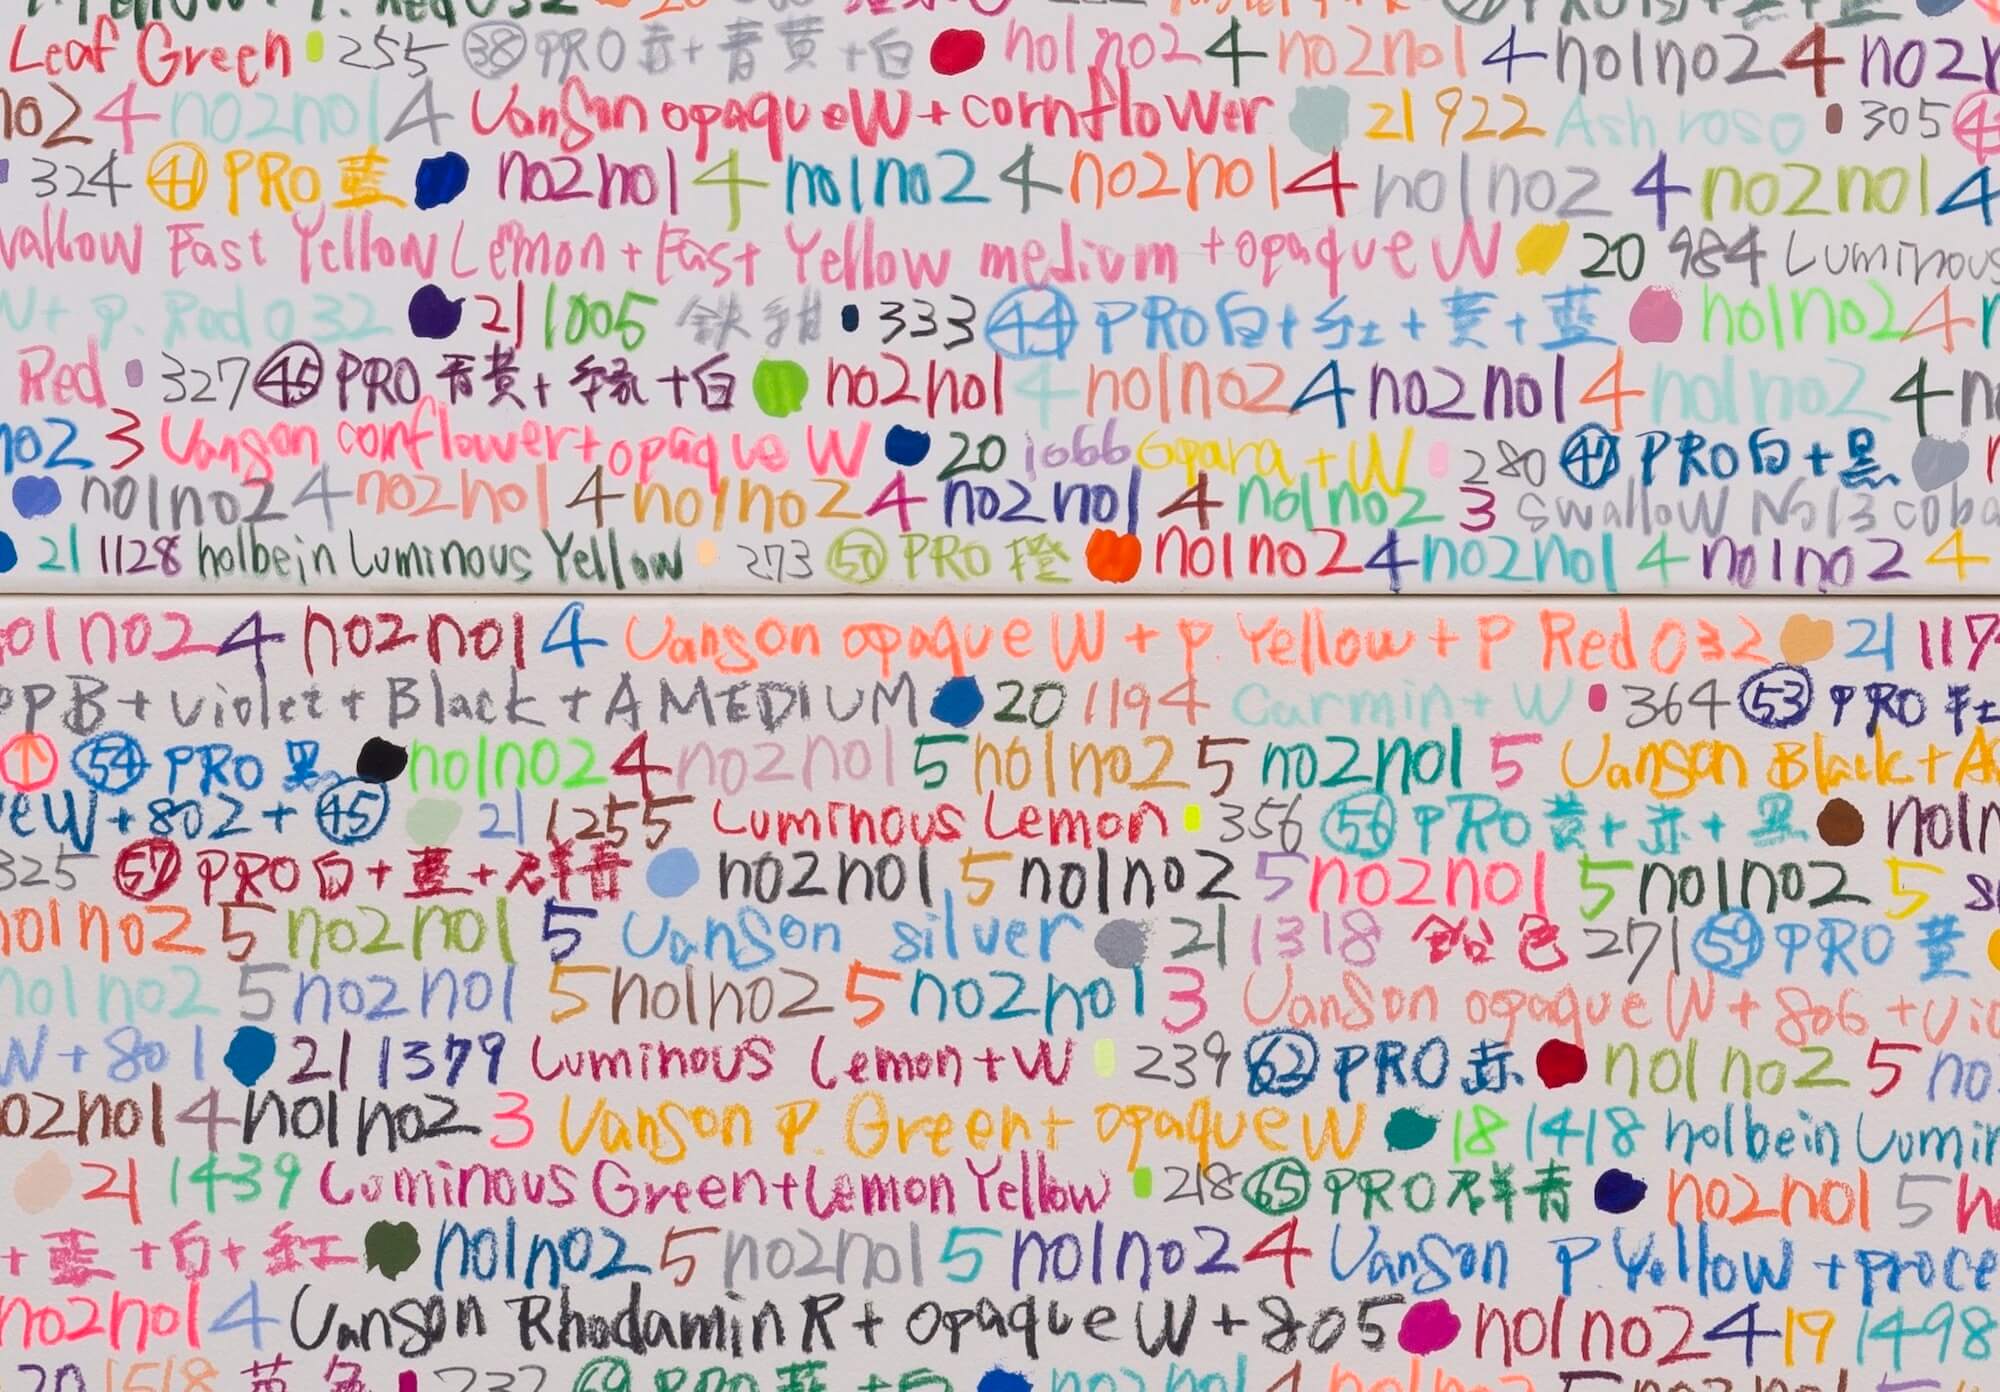 Leaf Green 255 ㊳ PRO 赤+青黄+白 no1no2 4 no2no1 4 no1no2 4
no2 4 no2no1 4 Vanson opaque W + cornflower 21 922 Ash rose 305
324 ㊶ PRO 藍 no2no1 4 no1no2 4 no2no1 4 no1no2 4 no2no1 4
Fast Yellow Lemon + Fast Yellow medium + opaque W 20 984 Luminous
W + P. Red 032 21 1005 鉄紺 333 ㊹ PRO 白+紅+黄+藍 no1no2 4
Red 327 ㊺ PRO 青黄+緑+白 no2no1 4 no1no2 4 no2no1 4 no1no2 4
no2 3 Vanson cornflower + opaque W 20 1066 Opara + W 280 ㊼ PRO 白+黒
no1no2 4 no2no1 4 no1no2 4 no2no1 4 no1no2 3 Swallow No13
21 1128 holbein Luminous Yellow 273 ㊿ PRO 橙 no1no2 4 no2no1 4 no1no2 4
no1no2 4 no2no1 4 Vanson opaque W + P. Yellow + P Red 032 21
OPB + violet + Black + A MEDIUM 20 1194 Carmin + W 364 (53) PRO
(54) PRO 黒 no1no2 4 no2no1 5 no1no2 5 no2no1 5 Vanson Black +
W + 802 + ㊺ 21 1255 Luminous Lemon 356 (56) PRO 黄+赤+黒
325 (57) PRO 白+藍+群青 no2no1 5 no1no2 5 no2no1 5 no1no2 5
no1no2 5 no2no1 5 Vanson silver 21 1318 鉛色 271 (59) PRO 黄
no1no2 5 no2no1 5 no1no2 5 no2no1 3 Vanson opaque W + 806 +
W + 801 21 1379 Luminous Lemon + W 239 (62) PRO 赤 no1no2 5
no2no1 4 no1no2 3 Vanson P. Green + opaque W 18 1418 holbein
21 1439 Luminous Green + Lemon Yellow 218 (65) PRO 群青 no2no1 5
+藍+白+紅 no1no2 5 no2no1 5 no1no2 4 Vanson P. Yellow +
no2no1 4 Vanson Rhodamin R + opaque W + 805 no1no2 4 19 1498
20 1518 232 (69) PRO 藍+白